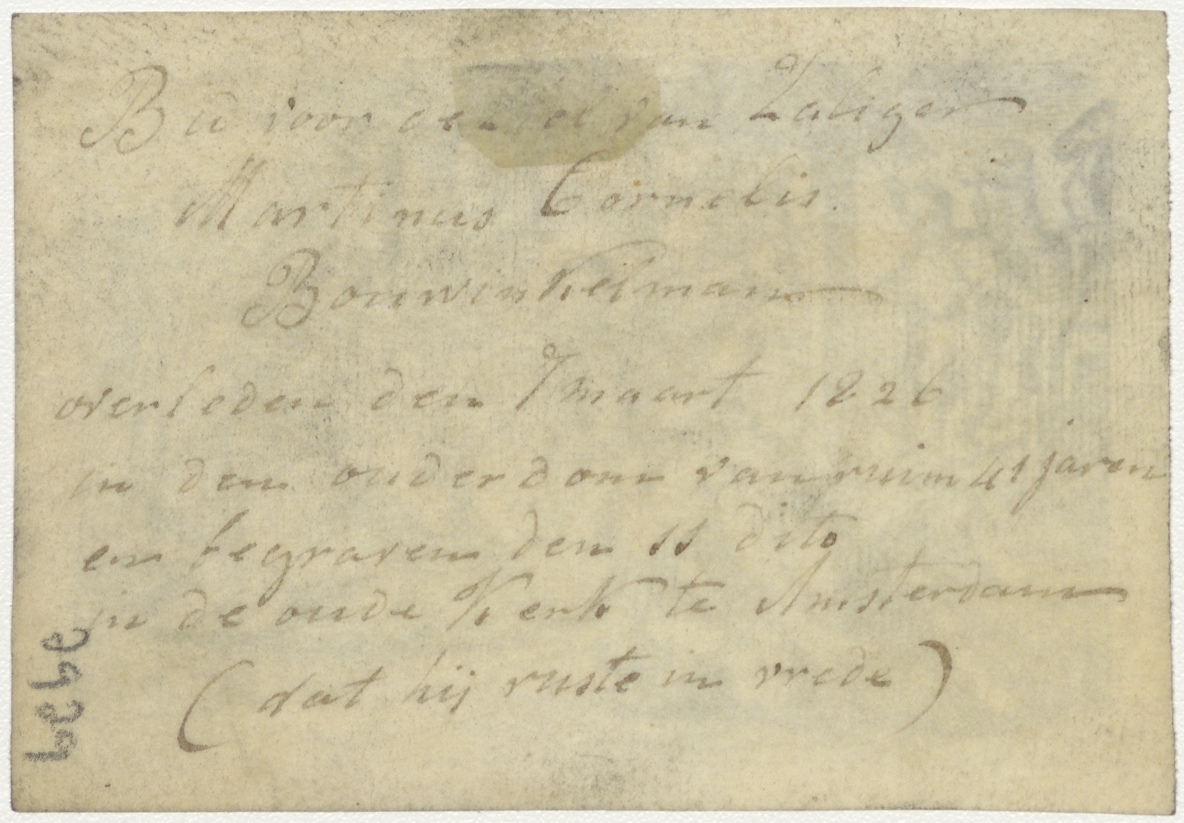 Bid voor de ziel van Zaliger
Martinus Cornelis
Bouwinkelman
overleden den 7 maart 1826
in den ouderdom van ruim 41 jaren
en begraven den 11 dito
in de oude Kerk te Amsterdam
(dat hij ruste in vrede)